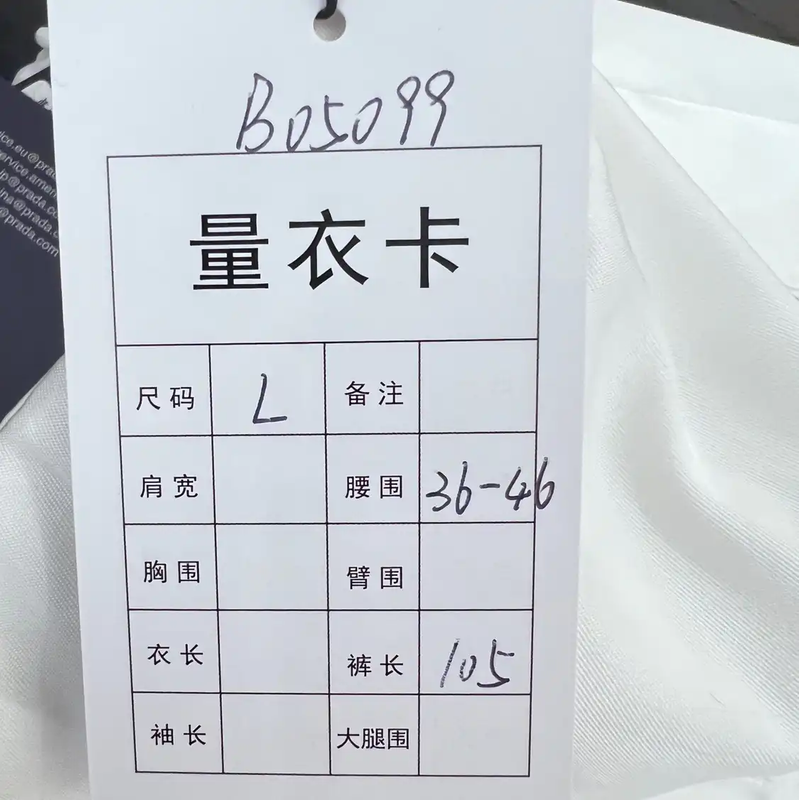 B05099
量衣卡
尺码 L 备注
肩宽 腰围 36-46
胸围 臂围
衣长 裤长 105
袖长 大腿围
ice.eu@prad
service.amer
lp@prada.c
ina@prada.c
@prada.com